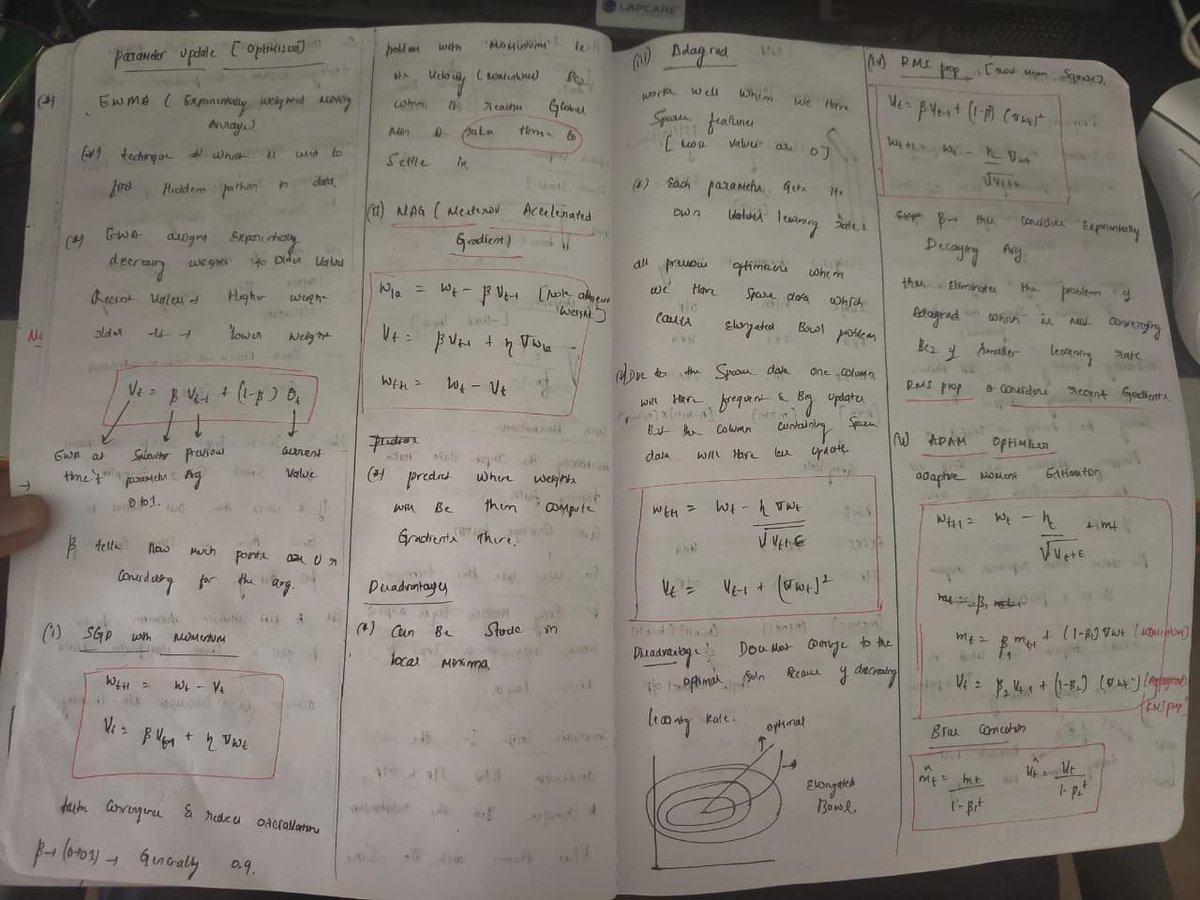 LAPCARE
Parameter Update [Optimizer]
(*) EWMA ( Exponentially weighted Moving
Average)
(*) technique which is used to
find Hidden pattern in data
(*) EWA assigns Exponentially
decreasing weights to older value
Recent value → Higher weight
older " → lower weight
Vt = β Vt-1 + (1-β) θt
EWA at Smooth previous current
time "t" parameter Avg value
0 to 1.
β tells How much points are U r
Considering for the avg.
(i) SGD with momentum
Wt+1 = Wt - Vt
Vt = β Vt-1 + η ∇wt
faster Convergence & reduce oscillations
β → (0 to 1) → Generally 0.9.
problem with momentum is
Its Velocity (momentum) Bcz
when it reaches Global
min it take time to
Settle in
(ii) NAG ( Nesterov Accelerated
Gradient)
Wla = Wt - β Vt-1 [look ahead
weight]
Vt = β Vt-1 + η ∇wla
Wt+1 = Wt - Vt
(*) predict where weights
will Be then compute
Gradients there.
Disadvantages
(*) Can Be Stuck in
local minima
(iii) Adagrad
works well when we Have
Sparse features
[ most values are 0]
(*) Each parameter Gets its
own learning rate
all previous optimizers when
we Have Sparse data which
cause Elongated Bowl problem
(*) Due to the Sparse data one column
will Have frequent & Big updates
But the column containing Sparse
data will Have less update
Wt+1 = Wt - η ∇wt / √Vt+ϵ
Vt = Vt-1 + (∇wt)²
Disadvantage :- Does Not converge to the
optimal soln Because of decreasing
learning Rate.
optimal
Elongated
Bowl.
(iv) RMS prop [root mean square]
Vt = β Vt-1 + (1-β) (∇wt)²
Wt+1 = Wt - η ∇wt / √Vt+ϵ
β → this Considers Exponentially
Decaying Avg.
this Eliminates the problem of
Adagrad which is not converging
Bcz of Smaller learning rate
RMS prop Considers recent Gradients
(v) ADAM Optimizer
adaptive moment Estimation
Wt+1 = Wt - η / √Vt+ϵ * mt
mt = β1 mt-1 + (1-β1) ∇wt (momentum)
Vt = β2 Vt-1 + (1-β2) (∇wt)² (Adagrad)
(RMSprop)
Bias Correction
m̂t = mt / 1-β1^t V̂t = Vt / 1-β2^t